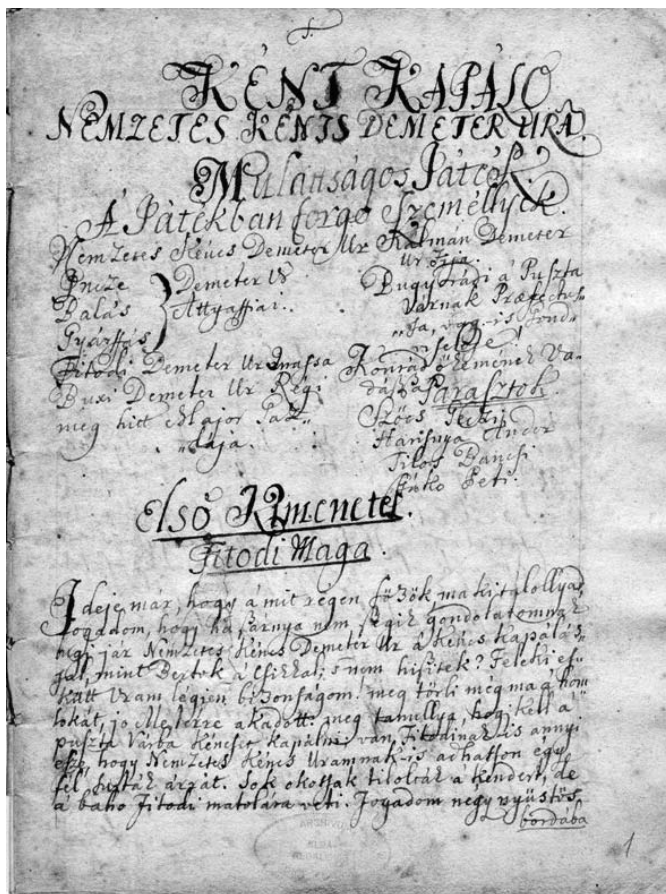 KÉNT KAPÁLO
NEMZETES KÉNTS DEMETER URÁ.
Mulattságos Játék.
A Játékban forgo Személlyek.
Nemzetes Kéncs Demeter Ur
Incze
Balás
Gyárfás
Demeter Ur
Attyaffiai.
Fitodi Demeter Ur Inassa
Buxi Demeter Ur Régi
meg hitt Major Gaz„
„dája.
Kálmán Demeter
Ur Fija.
Bugyfrádi á Puszta
Várnak Præfectus„
„sa, vagy is Gond„
viselője
Konrád ő kemének Va„
dássza
Parasztok.
Szőcs Petki
Harisnya Andor
Tilos Dancsi
Fitko Peti.
Első Kimenetel.
Fitodi Maga.
Ideje már, hogy á mit régen főzök ma ki talollyas
fogadom, hogy ha fárnya nem segit gondolatomnak
ugy jár Nemzetes Kéncs Demeter Ur á Kéncs Kapalás„
sal, mint Bertok á Csikkal; s nem hiszitek? Feleki es„
kütt Uram légyen bizonságom! meg törli még ma á hom„
lokát, jo Mesterre akadott: meg tanullya, hogy kell á
puszta Várba kéncset kapálni; van Fitodinak is annyi
esze, hogy Nemzetes Kéncs Uramnak is adhasson egy
fél susták árrát. Sok okossak tilolták á kendert, de
á baho Fitodi matolára veti. Fogadom negy nyüstös
bordába
1